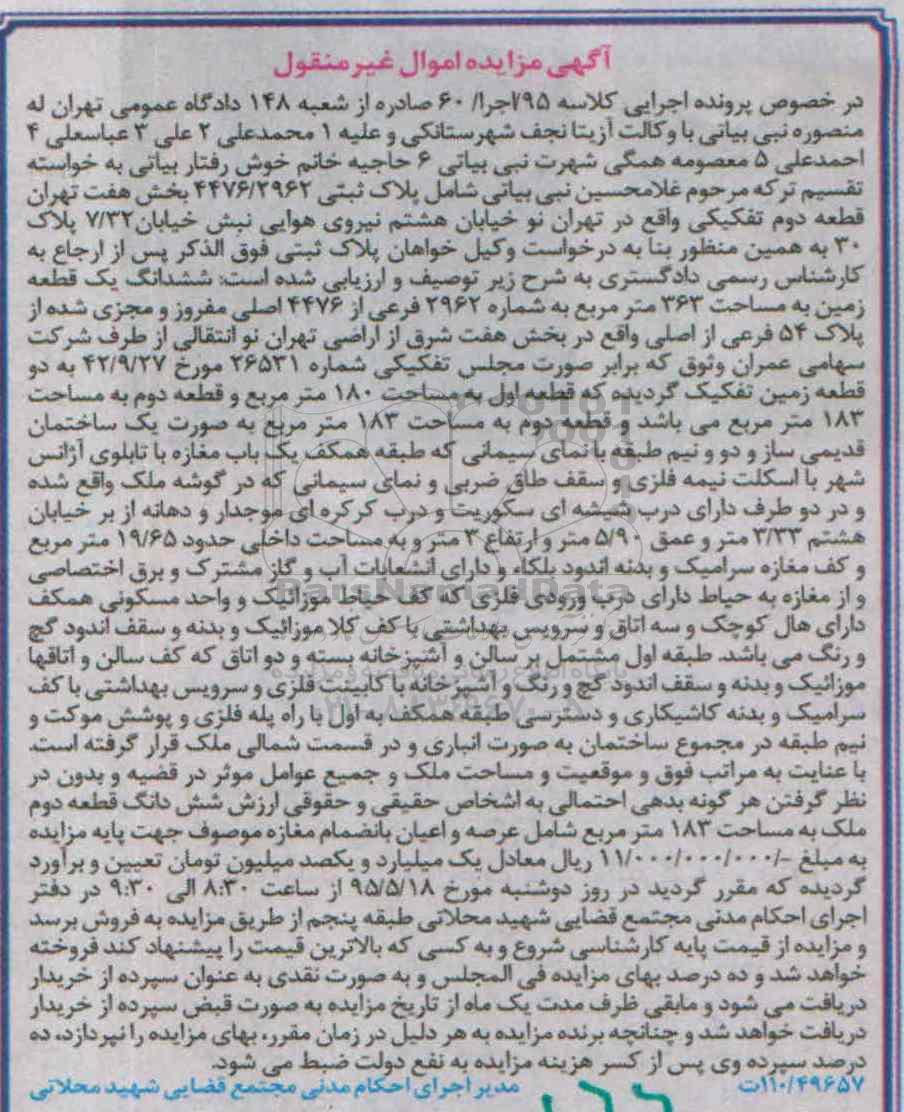 آگهی مزایده اموال غیر منقول
در خصوص پرونده اجرایی کلاسه ۷۹۵اجرا/ ۶۰ صادره از شعبه ۱۴۸ دادگاه عمومی تهران له
منصوره نبی بیاتی با وکالت آزیتا نجف شهرستانکی و علیه ۱ محمدعلی ۲ علی ۳ عباسعلی ۴
احمدعلی ۵ معصومه همگی شهرت نبی بیاتی ۶ حاجیه خانم خوش رفتار بیاتی به خواسته
تقسیم ترکه مرحوم غلامحسین نبی بیاتی شامل پلاک ثبتی ۴۴۷۶/۲۹۶۲ بخش هفت تهران
قطعه دوم تفکیکی واقع در تهران نو خیابان هشتم نیروی هوایی نبش خیابان ۷/۳۲ پلاک
۳۰ به همین منظور بنا به درخواست وکیل خواهان پلاک ثبتی فوق الذکر پس از ارجاع به
کارشناس رسمی دادگستری به شرح زیر توصیف و ارزیابی شده است: ششدانگ یک قطعه
زمین به مساحت ۳۶۳ متر مربع به شماره ۲۹۶۲ فرعی از ۴۴۷۶ اصلی مفروز و مجزی شده از
پلاک ۵۴ فرعی از اصلی واقع در بخش هفت شرق از اراضی تهران نو انتقالی از طرف شرکت
سهامی عمران وثوق که برابر صورت مجلس تفکیکی شماره ۲۶۵۳۱ مورخ ۴۲/۹/۲۷ به دو
قطعه زمین تفکیک گردیده که قطعه اول به مساحت ۱۸۰ متر مربع و قطعه دوم به مساحت
۱۸۳ متر مربع می باشد و قطعه دوم به مساحت ۱۸۳ متر مربع به صورت یک ساختمان
قدیمی ساز و دو و نیم طبقه با نمای سیمانی که طبقه همکف یک باب مغازه با تابلوی آژانس
شهر با اسکلت نیمه فلزی و سقف طاق ضربی و نمای سیمانی که در گوشه ملک واقع شده
و در دو طرف دارای درب شیشه ای سکوریت و درب کرکره ای موجدار و دهانه از بر خیابان
هشتم ۳/۳۳ متر و عمق ۵/۹۰ متر و ارتفاع ۳ متر و به مساحت داخلی حدود ۱۹/۶۵ متر مربع
و کف مغازه سرامیک و بدنه اندود بلکاء و دارای انشعابات آب و گاز مشترک و برق اختصاصی
و از مغازه به حیاط دارای درب ورودی فلزی که کف حیاط موزائیک و واحد مسکونی همکف
دارای هال کوچک و سه اتاق و سرویس بهداشتی با کف کلا موزائیک و بدنه و سقف اندود گچ
و رنگ می باشد. طبقه اول مشتمل بر سالن و آشپزخانه بسته و دو اتاق که کف سالن و اتاقها
موزائیک و بدنه و سقف اندود گچ و رنگ و آشپزخانه با کابینت فلزی و سرویس بهداشتی با کف
سرامیک و بدنه کاشیکاری و دسترسی طبقه همکف به اول با راه پله فلزی و پوشش موکت و
نیم طبقه در مجموع ساختمان به صورت انباری و در قسمت شمالی ملک قرار گرفته است.
با عنایت به مراتب فوق و موقعیت و مساحت ملک و جمیع عوامل موثر در قضیه و بدون در
نظر گرفتن هر گونه بدهی احتمالی به اشخاص حقیقی و حقوقی ارزش شش دانگ قطعه دوم
ملک به مساحت ۱۸۳ متر مربع شامل عرصه و اعیان بانضمام مغازه موصوف جهت پایه مزایده
به مبلغ -/۱۱/۰۰۰/۰۰۰/۰۰۰ ریال معادل یک میلیارد و یکصد میلیون تومان تعیین و برآورد
گردیده که مقرر گردید در روز دوشنبه مورخ ۹۵/۵/۱۸ از ساعت ۸:۳۰ الی ۹:۳۰ در دفتر
اجرای احکام مدنی مجتمع قضایی شهید محلاتی طبقه پنجم از طریق مزایده به فروش برسد
و مزایده از قیمت پایه کارشناسی شروع و به کسی که بالاترین قیمت را پیشنهاد کند فروخته
خواهد شد و ده درصد بهای مزایده فی المجلس و به صورت نقدی به عنوان سپرده از خریدار
دریافت می شود و مابقی ظرف مدت یک ماه از تاریخ مزایده به صورت قبض سپرده از خریدار
دریافت خواهد شد و چنانچه برنده مزایده به هر دلیل در زمان مقرر، بهای مزایده را نپردازد، ده
درصد سپرده وی پس از کسر هزینه مزایده به نفع دولت ضبط می شود.
۱۱۰/۴۹۶۵۷ت مدیر اجرای احکام مدنی مجتمع قضایی شهید محلاتی
ParsNamadData